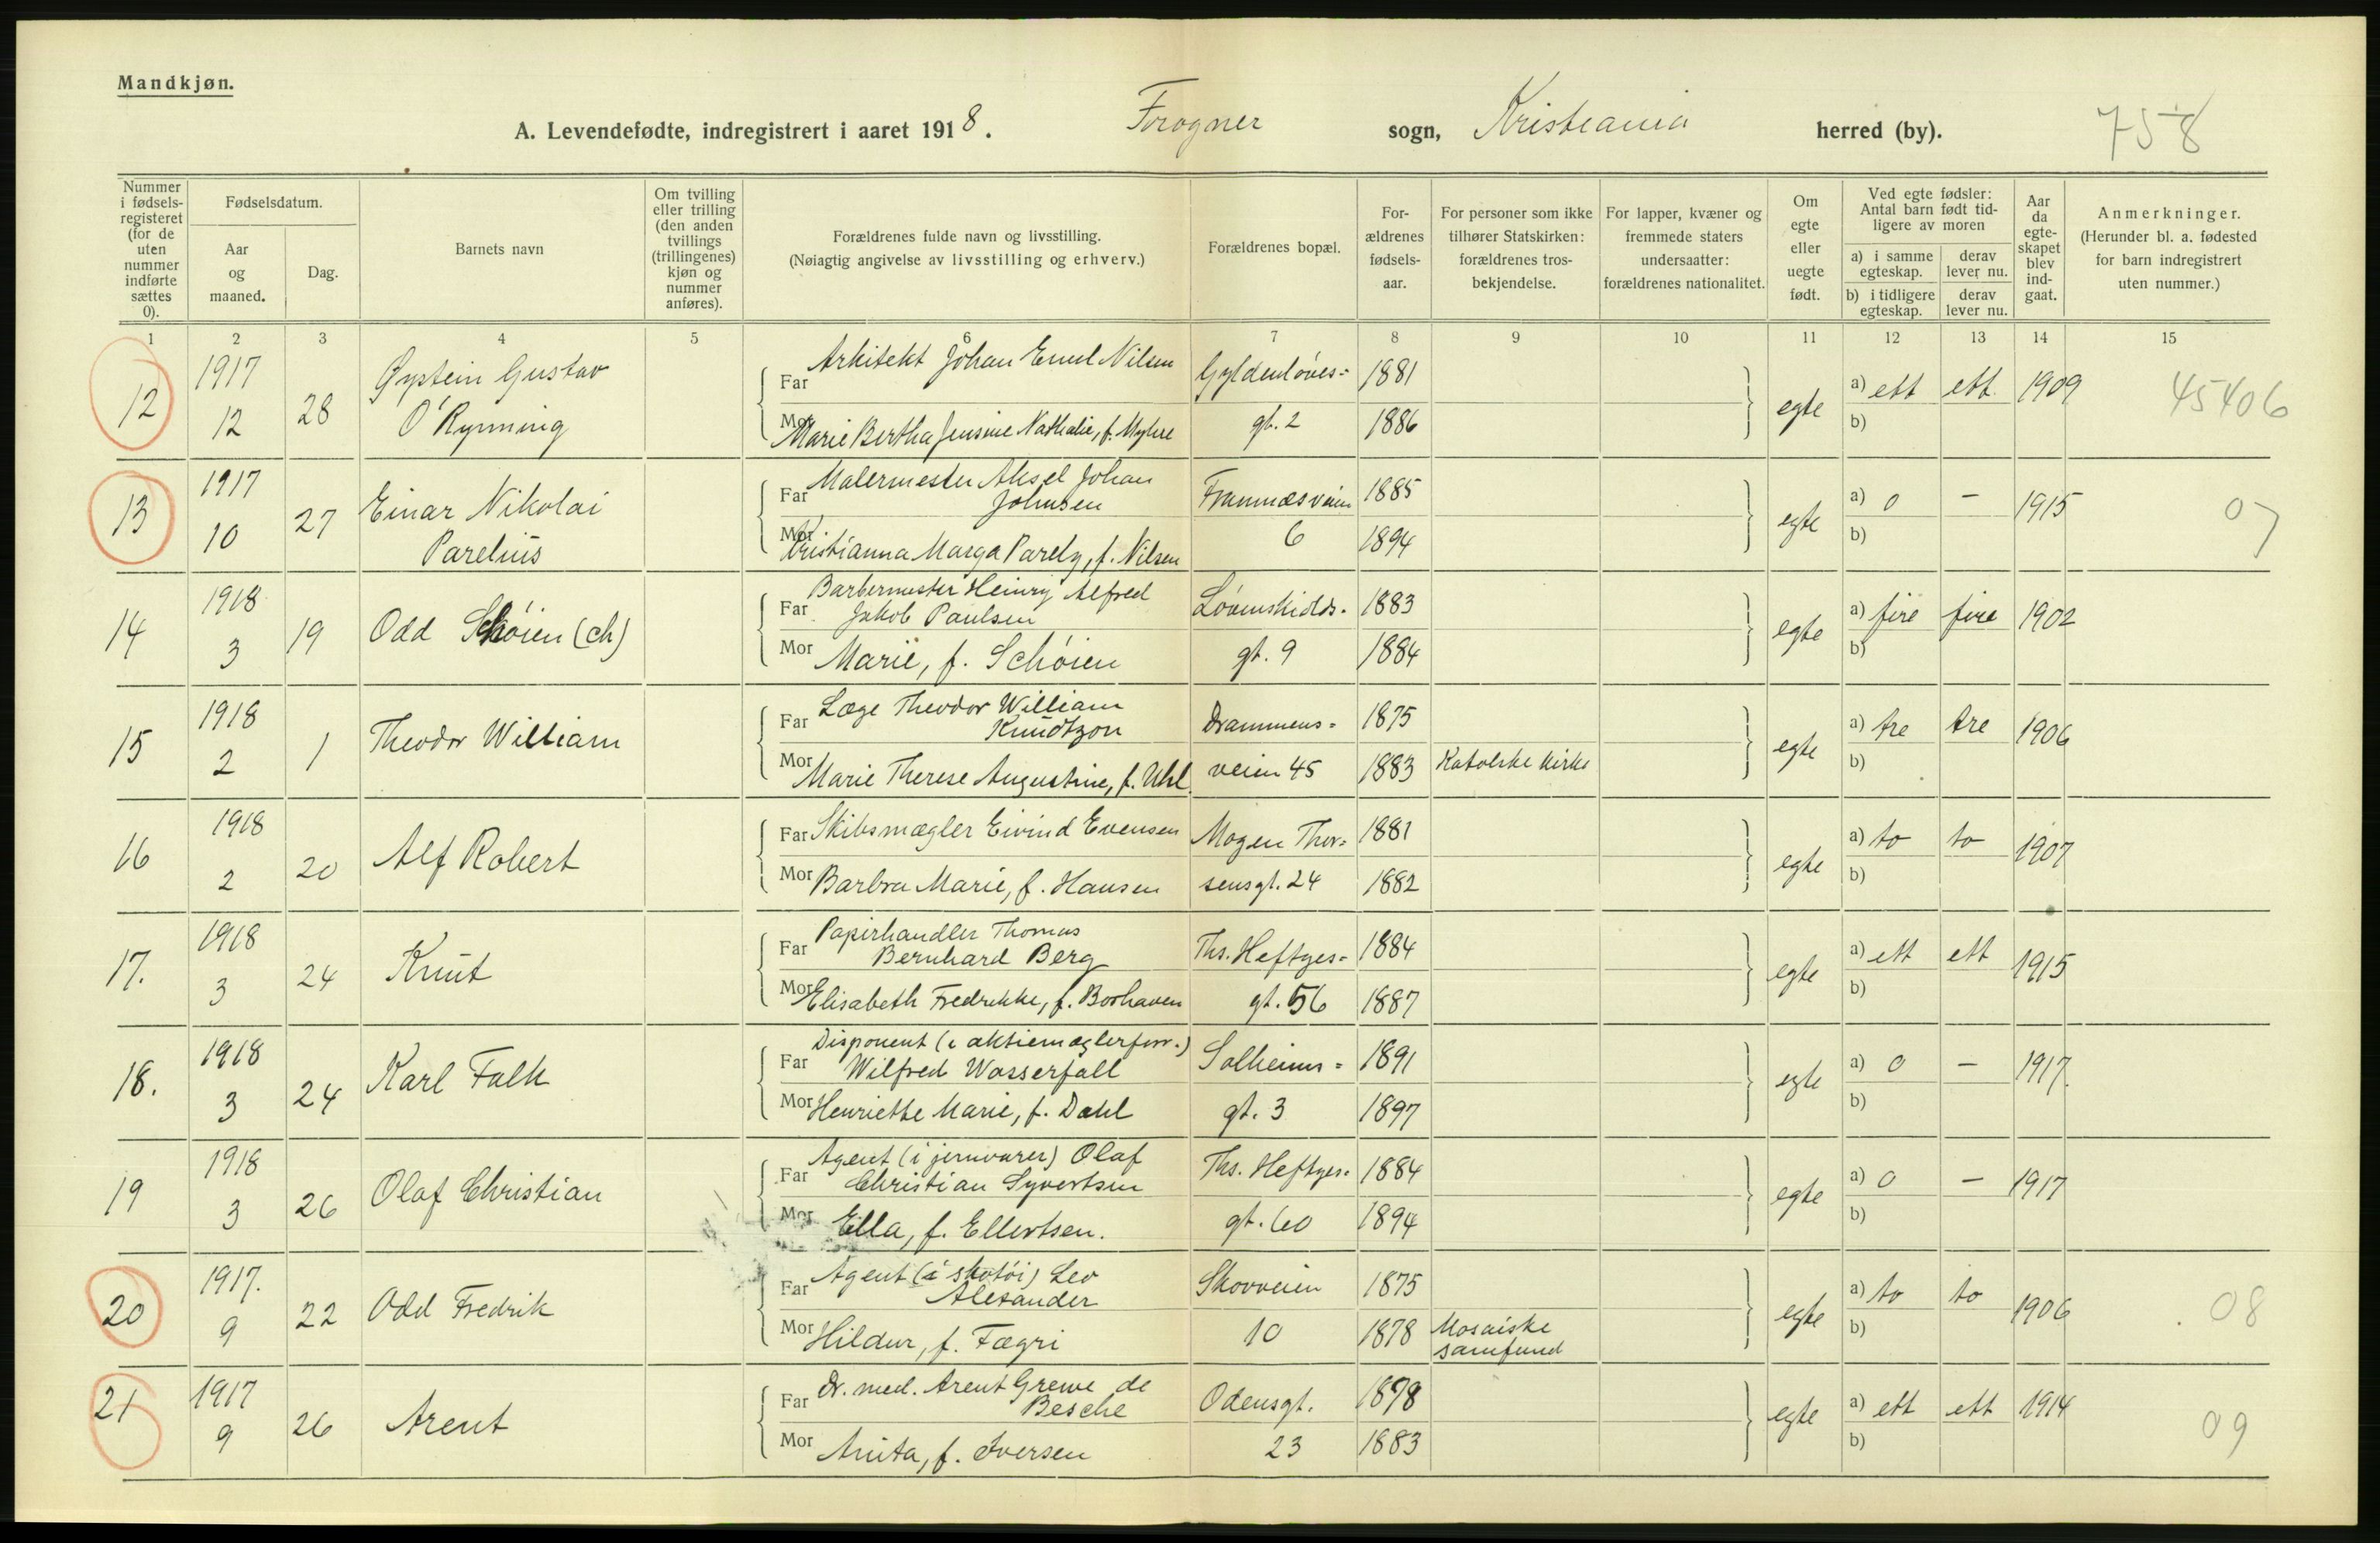 Mandkjøn.
A. Levendefødte, indregistrert i aaret 1918. Frogner sogn, Kristiania herred (by). 758
Nummer i fødsels-registeret (for de uten nummer indførte sættes 0).
Fødselsdatum.
Aar og maaned.
Dag.
Barnets navn
Om tvilling eller trilling (den anden tvillings (trillingenes) kjøn og nummer anføres).
Forældrenes fulde navn og livsstilling.
(Nøiagtig angivelse av livsstilling og erhverv.)
Forældrenes bopæl.
For-ældrenes fødsels-aar.
For personer som ikke tilhører Statskirken: forældrenes tros-bekjendelse.
For lapper, kvæner og fremmede staters undersaatter: forældrenes nationalitet.
Om egte eller uegte født.
Ved egte fødsler: Antal barn født tid-ligere av moren
a) i samme egteskap. derav lever nu.
b) i tidligere egteskap. derav lever nu.
Aar da egte-skapet blev ind-gaat.
Anmerkninger.
(Herunder bl. a. fødested for barn indregistrert uten nummer.)
1 2 3 4 5 6 7 8 9 10 11 12 13 14 15
12 1917 12 28 Øystein Gustav O'Rynning
Far Arkitekt Johan Emil Nilsen Gyldenløves= 1881 egte a) ett ett 1909 45406
Mor Marie Bertha Jensine Nathalie, f. Myhre gt. 2 1886 b)
13 1917 10 27 Einar Nikolai Parelius
Far Malermester Aksel Johan Johnsen Framnæsveien 1885 egte a) 0 – 1915 07
Mor Kristianna Marga Parely, f. Nilsen 6 1894 b)
14 1918 3 19 Odd Schöien (ch)
Far Barbermester Heinry Alfred Jakob Paulsen Løvenskiolds. 1883 egte a) fire fire 1902
Mor Marie, f. Schöien gt. 9 1884 b)
15 1918 2 1 Theodor William
Far Læge Theodor William Knudtzon Drammens= 1875 egte a) tre tre 1906
Mor Marie Therese Augustine, f. Uhl veien 45 1883 Katolske kirke b)
16 1918 2 20 Alf Robert
Far Skibsmægler Eivind Evensen Mogen Thor= 1881 egte a) to to 1907
Mor Barbra Marie, f. Hansen sensgt. 24 1882 b)
17. 1918 3 24 Knut
Far Papirhandler Thomas Bernhard Berg Ths. Heftyes= 1884 egte a) ett ett 1915
Mor Elisabeth Fredrikke, f. Boshaven gt. 56 1887 b)
18. 1918 3 24 Karl Falk
Far Disponent (i aktiemæglerforr.) Wilfred Wasserfall Solheims= 1891 egte a) 0 – 1917.
Mor Henriette Marie, f. Dahl gt. 3 1897 b)
19 1918 3 26 Olaf Christian
Far Agent (i jernvarer) Olaf Christian Syvertsen Ths. Heftyes= 1884 egte a) 0 – 1917
Mor Ella, f. Ellertsen. gt. 60 1894 b)
20 1917. 9 22 Odd Fredrik
Far Agent (i skotöi) Leo Alexander Skovveien 1875 egte a) to to 1906 08
Mor Hildur, f. Fægri 10 1878 Mosaiske samfund b)
21 1917 9 26 Arent
Far Dr. med. Arent Greve de Besche Odensgt. 1878 egte a) ett ett 1914 09
Mor Anita, f. Iversen 23 1883 b)